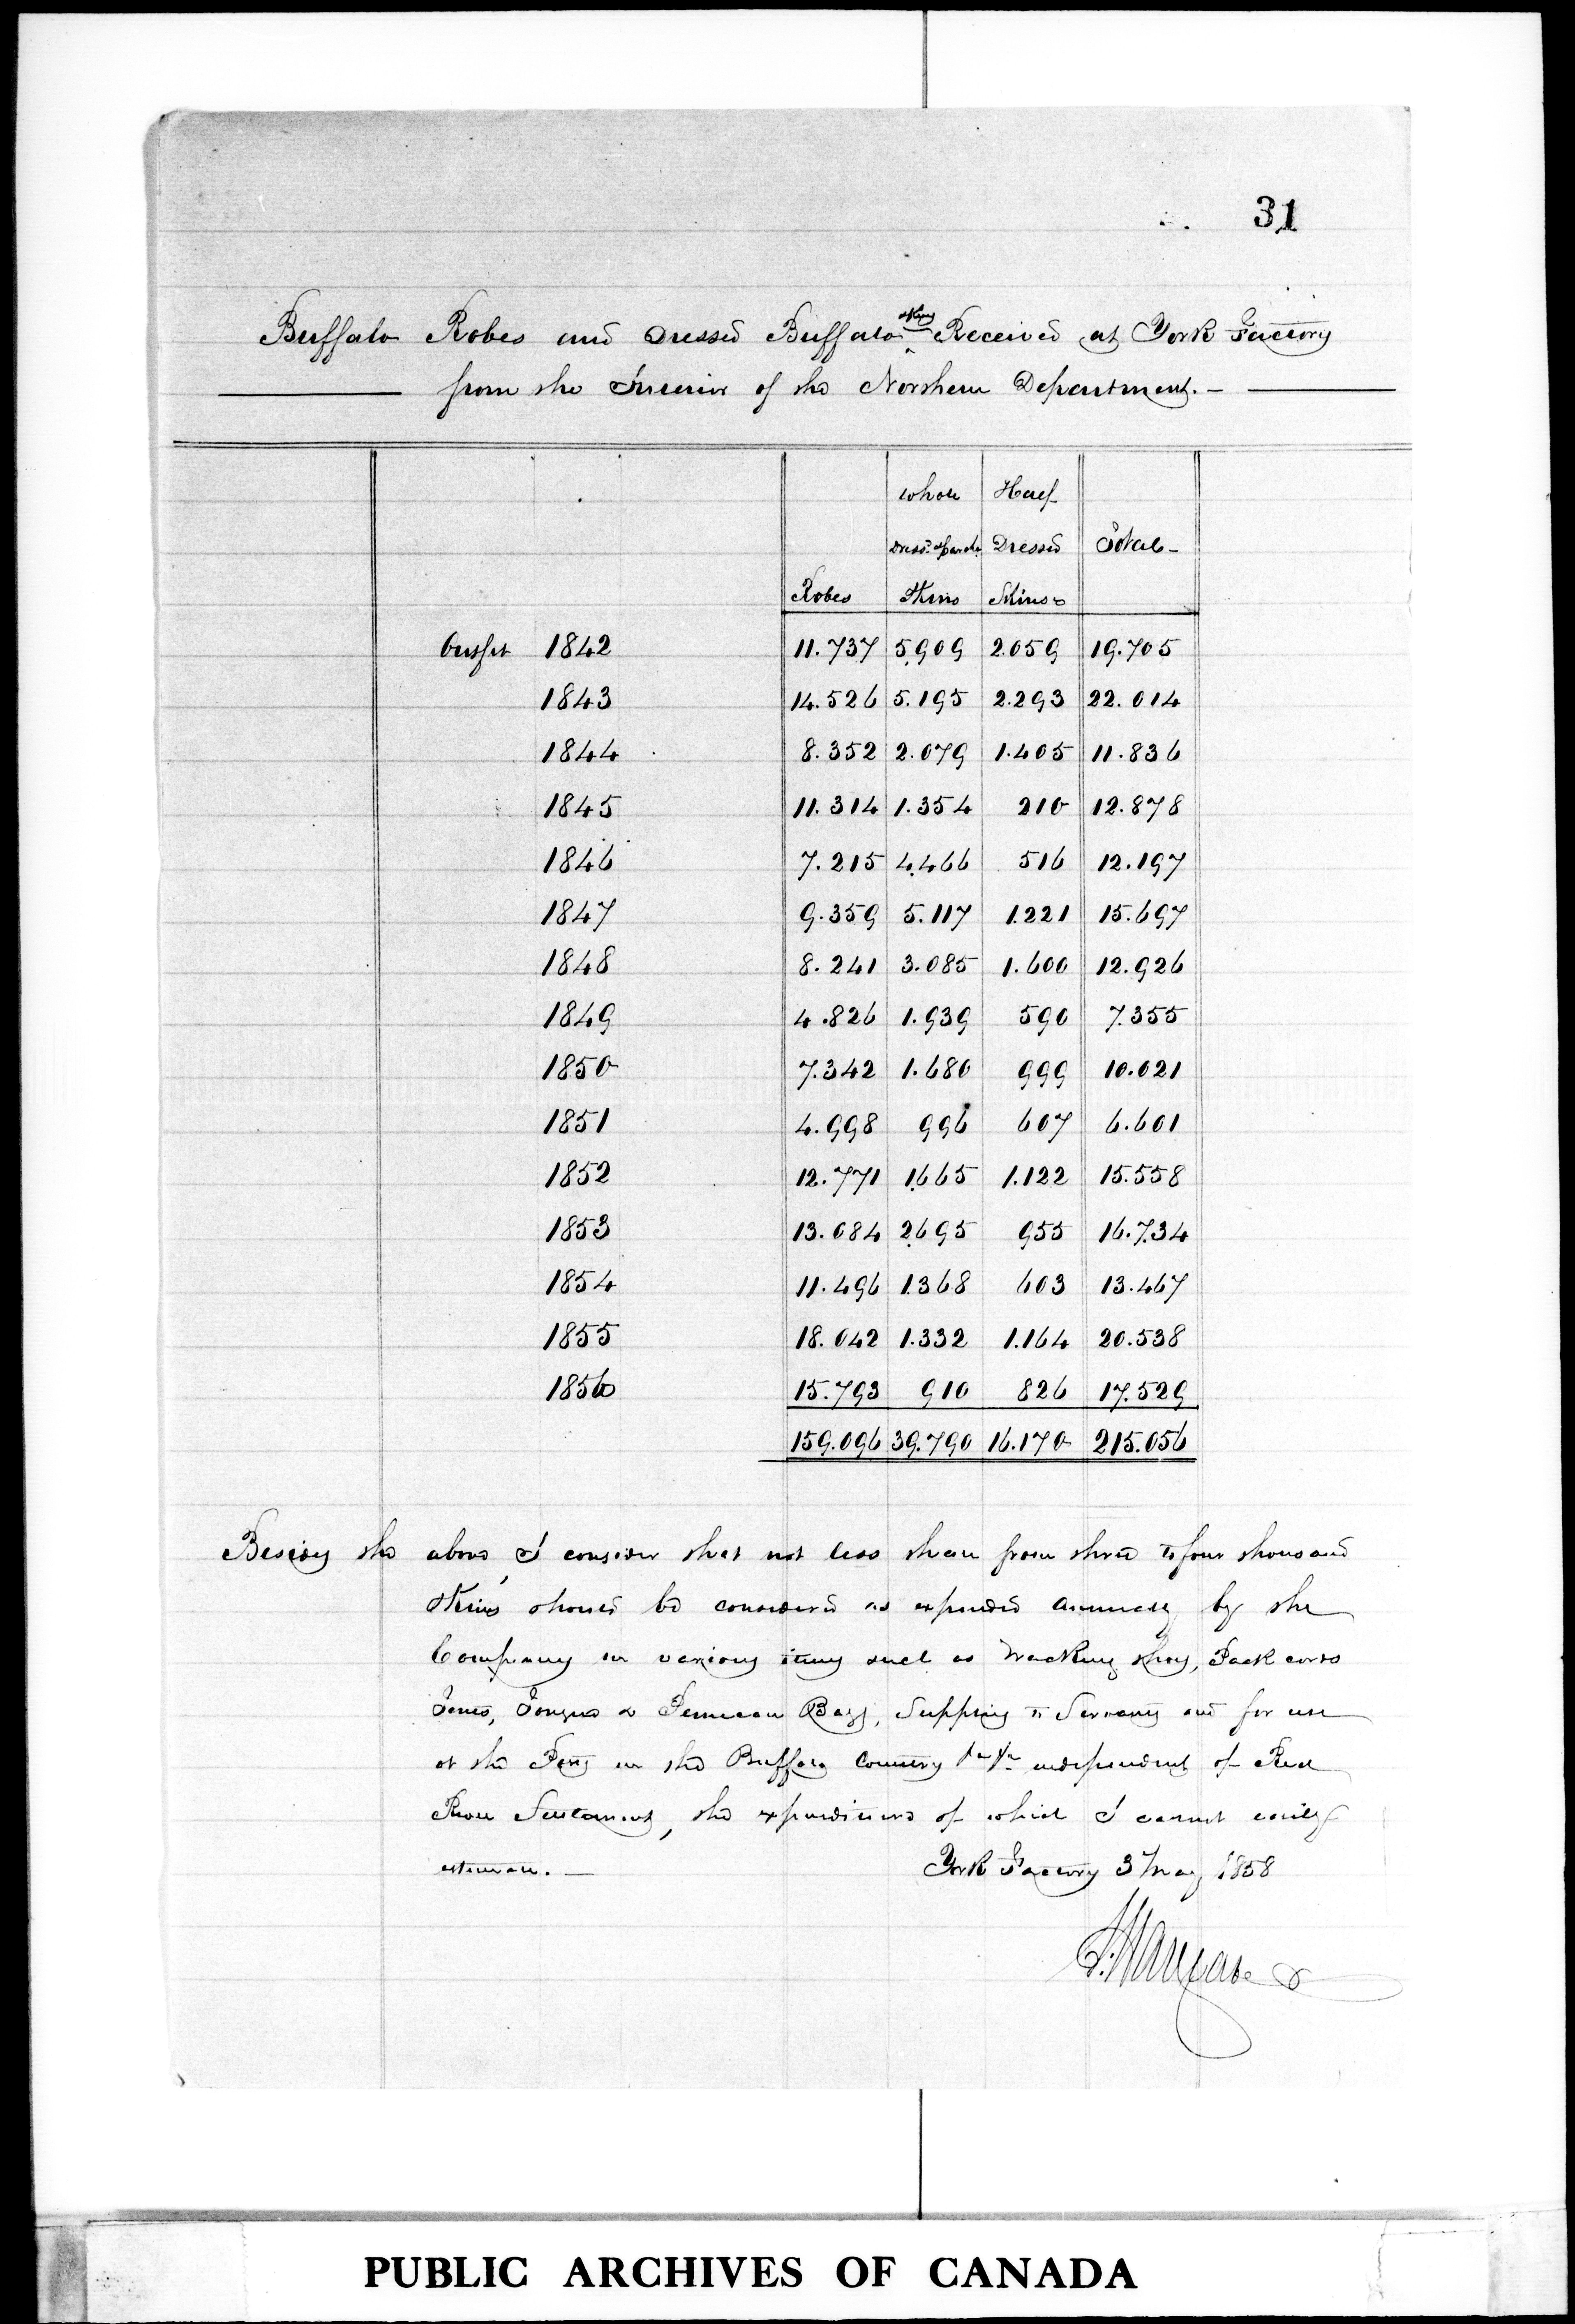 31
Buffalo Robes and Dressed Buffalo skins Received at York Factory
from the Interior of the Northern Department.-
whole Half
Dress.d & parcht. Dressed Total-
Robes Skins Skins
Outfit 1842 11.737 5.909 2.059 19.705
1843 14.526 5.195 2.293 22.014
1844 8.352 2.079 1.405 11.836
1845 11.314 1.354 210 12.878
1846 7.215 4.466 516 12.197
1847 9.359 5.117 1.221 15.697
1848 8.241 3.085 1.600 12.926
1849 4.826 1.939 590 7.355
1850 7.342 1.680 999 10.021
1851 4.998 996 607 6.601
1852 12.771 1.665 1.122 15.558
1853 13.084 2.695 955 16.734
1854 11.496 1.368 603 13.467
1855 18.042 1.332 1.164 20.538
1856 15.793 910 826 17.529
159.096 39.790 16.170 215.056
Besides the above, I consider that not less than from three to four thousand
Skins should be considered as expended annually by the
Company in various items such as Tracking Shoes, Pack cords
Tents, Tongues & Pemican Bags, Supplies to Servants and for use
at the Forts in the Buffalo Country &a &a independent of Red
River Settlement, the expenditure of which I cannot easily
estimate.- York Factory 3 May 1858
J. Hargrave
PUBLIC ARCHIVES OF CANADA